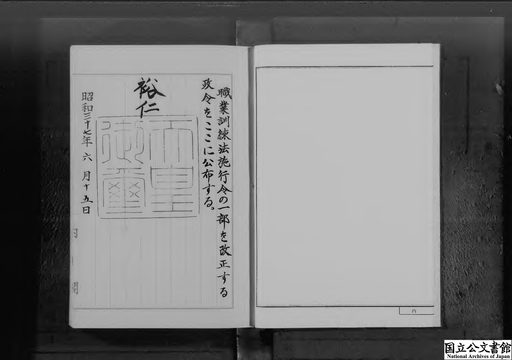 職業訓練法施行令の一部を改正する
政令をここに公布する。
裕仁
天皇
御璽
昭和三十七年六月十五日
国立公文書館
National Archives of Japan